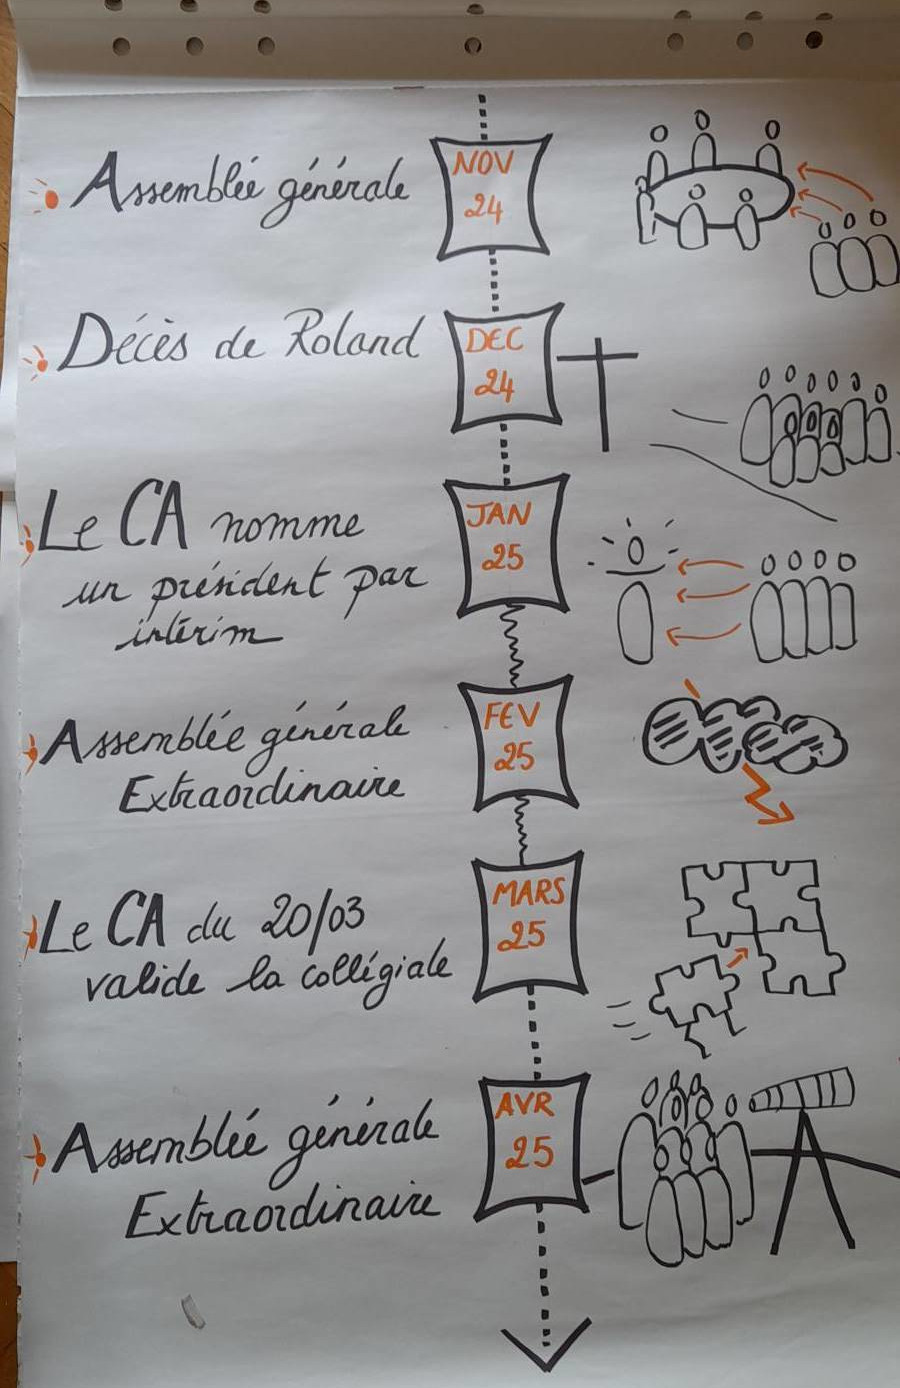 Assemblée générale
NOV
24
Décès de Roland
DEC
24
Le CA nomme
un président par
intérim
JAN
25
Assemblée générale
Extraordinaire
FEV
25
Le CA du 20/03
valide la collégiale
MARS
25
Assemblée générale
Extraordinaire
AVR
25